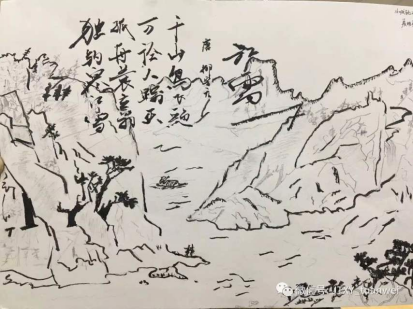 江雪
唐 柳宗元
千山鸟飞绝
万径人踪灭
孤舟蓑笠翁
独钓寒江雪
微信号: